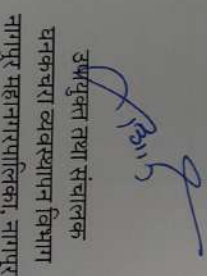 उपायुक्त तथा संचालक
घनकचरा व्यवस्थापन विभाग
नागपूर महानगरपालिका, नागपूर